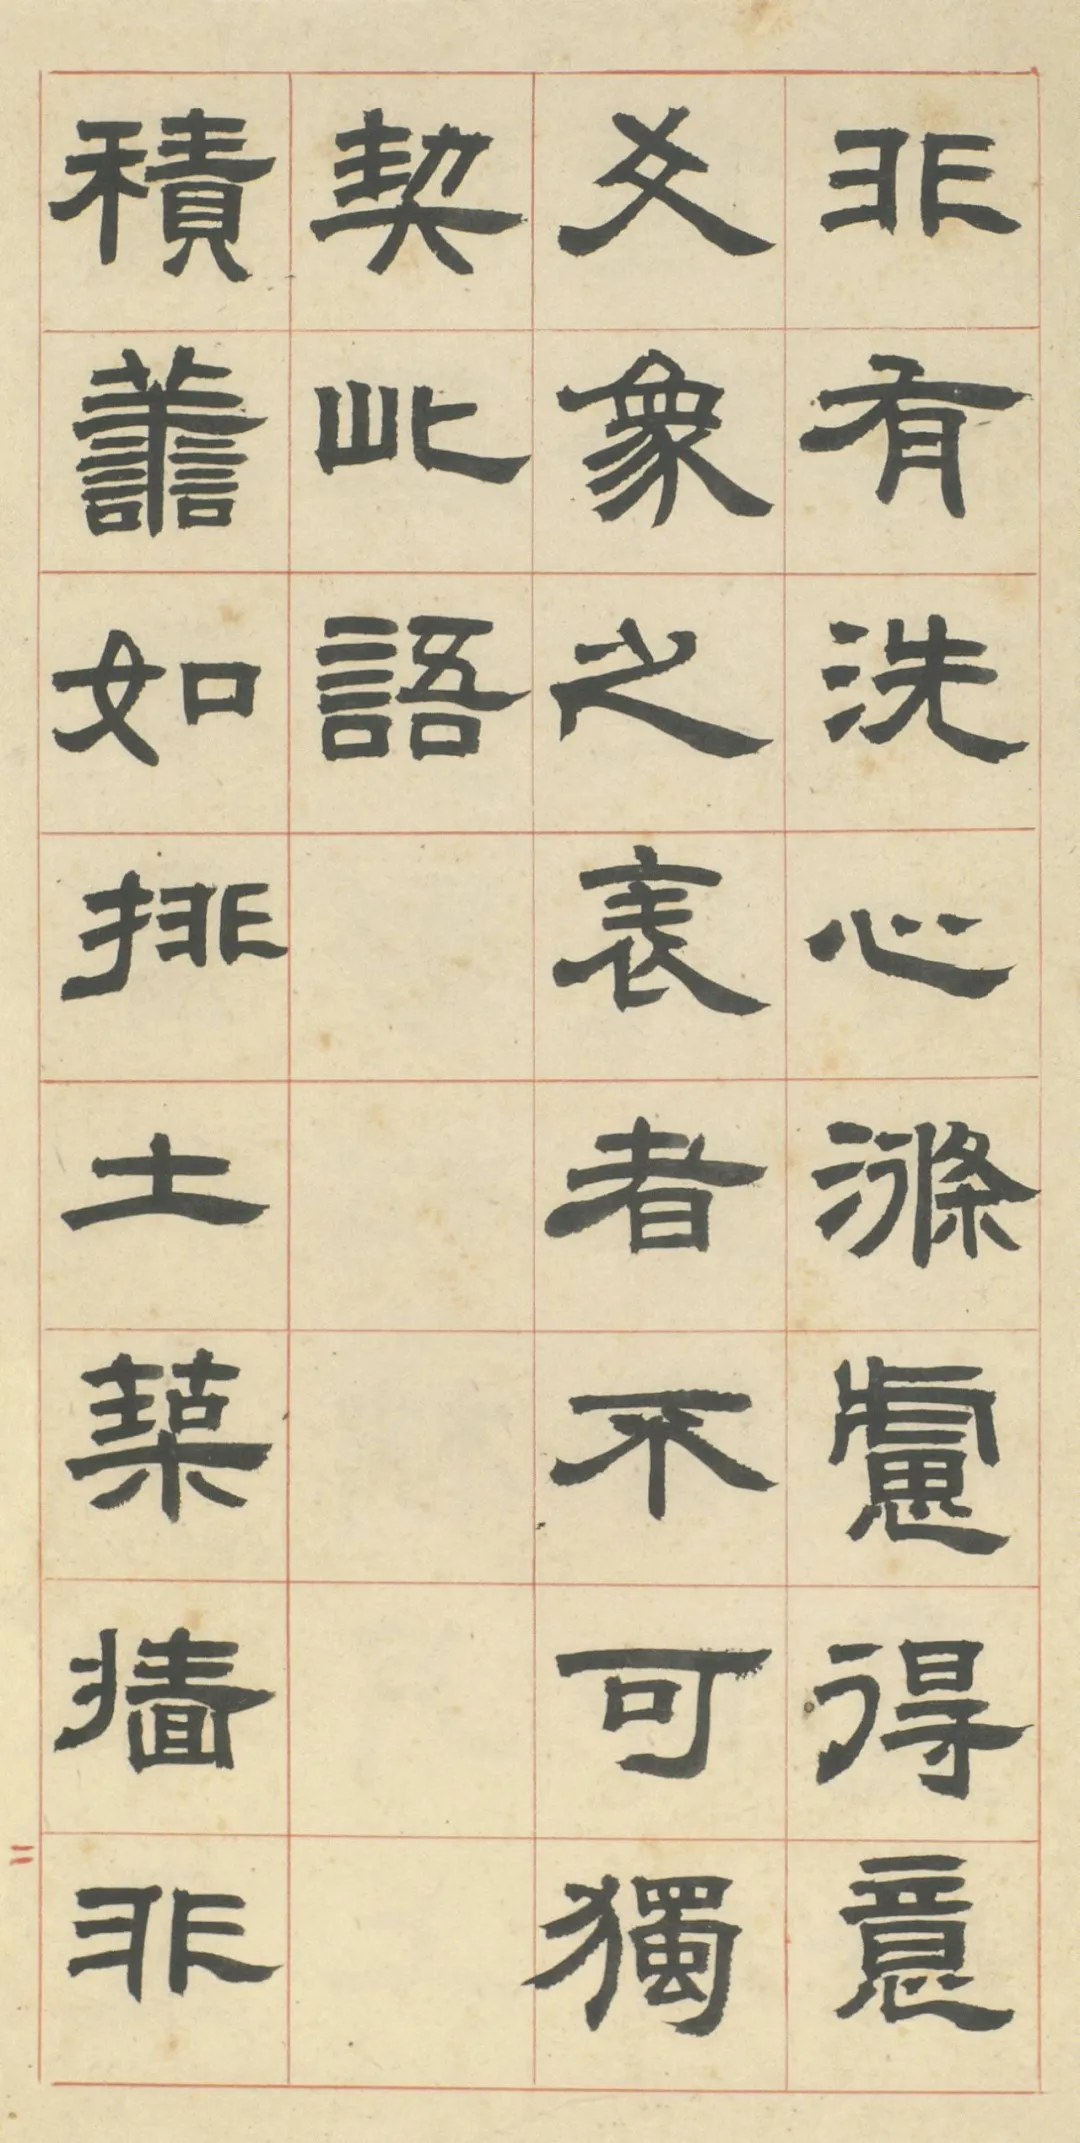 非有洗心滌慮得意
爻象之表者不可獨
契此語
積譱如排土築牆非